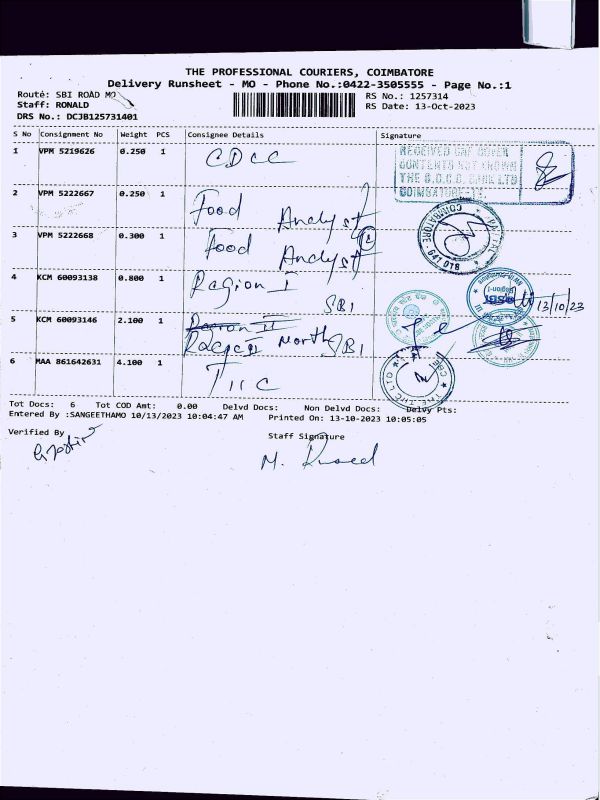 THE PROFESSIONAL COURIERS, COIMBATORE
Delivery Runsheet - MO - Phone No.:0422-3505555 - Page No.:1
Route: SBI ROAD MO RS No.: 1257314
Staff: RONALD RS Date: 13-Oct-2023
DRS No.: DCJB125731401
S No Consignment No Weight PCS Consignee Details Signature
1 VPM 5219626 0.250 1 CDCC
RECEIVED ONE COVER
CONTENTS NOT KNOWN
THE C.D.C.C. BANK LTD
COIMBATORE-
2 VPM 5222667 0.250 1 Food Analyst
COIMBATORE - 641 018
3 VPM 5222668 0.300 1 Food Analyst 2
4 KCM 60093138 0.800 1 Region I SBI
SBI 13/10/23
5 KCM 60093146 2.100 1 Region II North SBI
6 MAA 861642631 4.100 1 TIIC
THE TIIC LTD
Tot Docs: 6 Tot COD Amt: 0.00 Delvd Docs: Non Delvd Docs: Delvy Pts:
Entered By :SANGEETHAMO 10/13/2023 10:04:47 AM Printed On: 13-10-2023 10:05:05
Verified By Staff Signature
M.